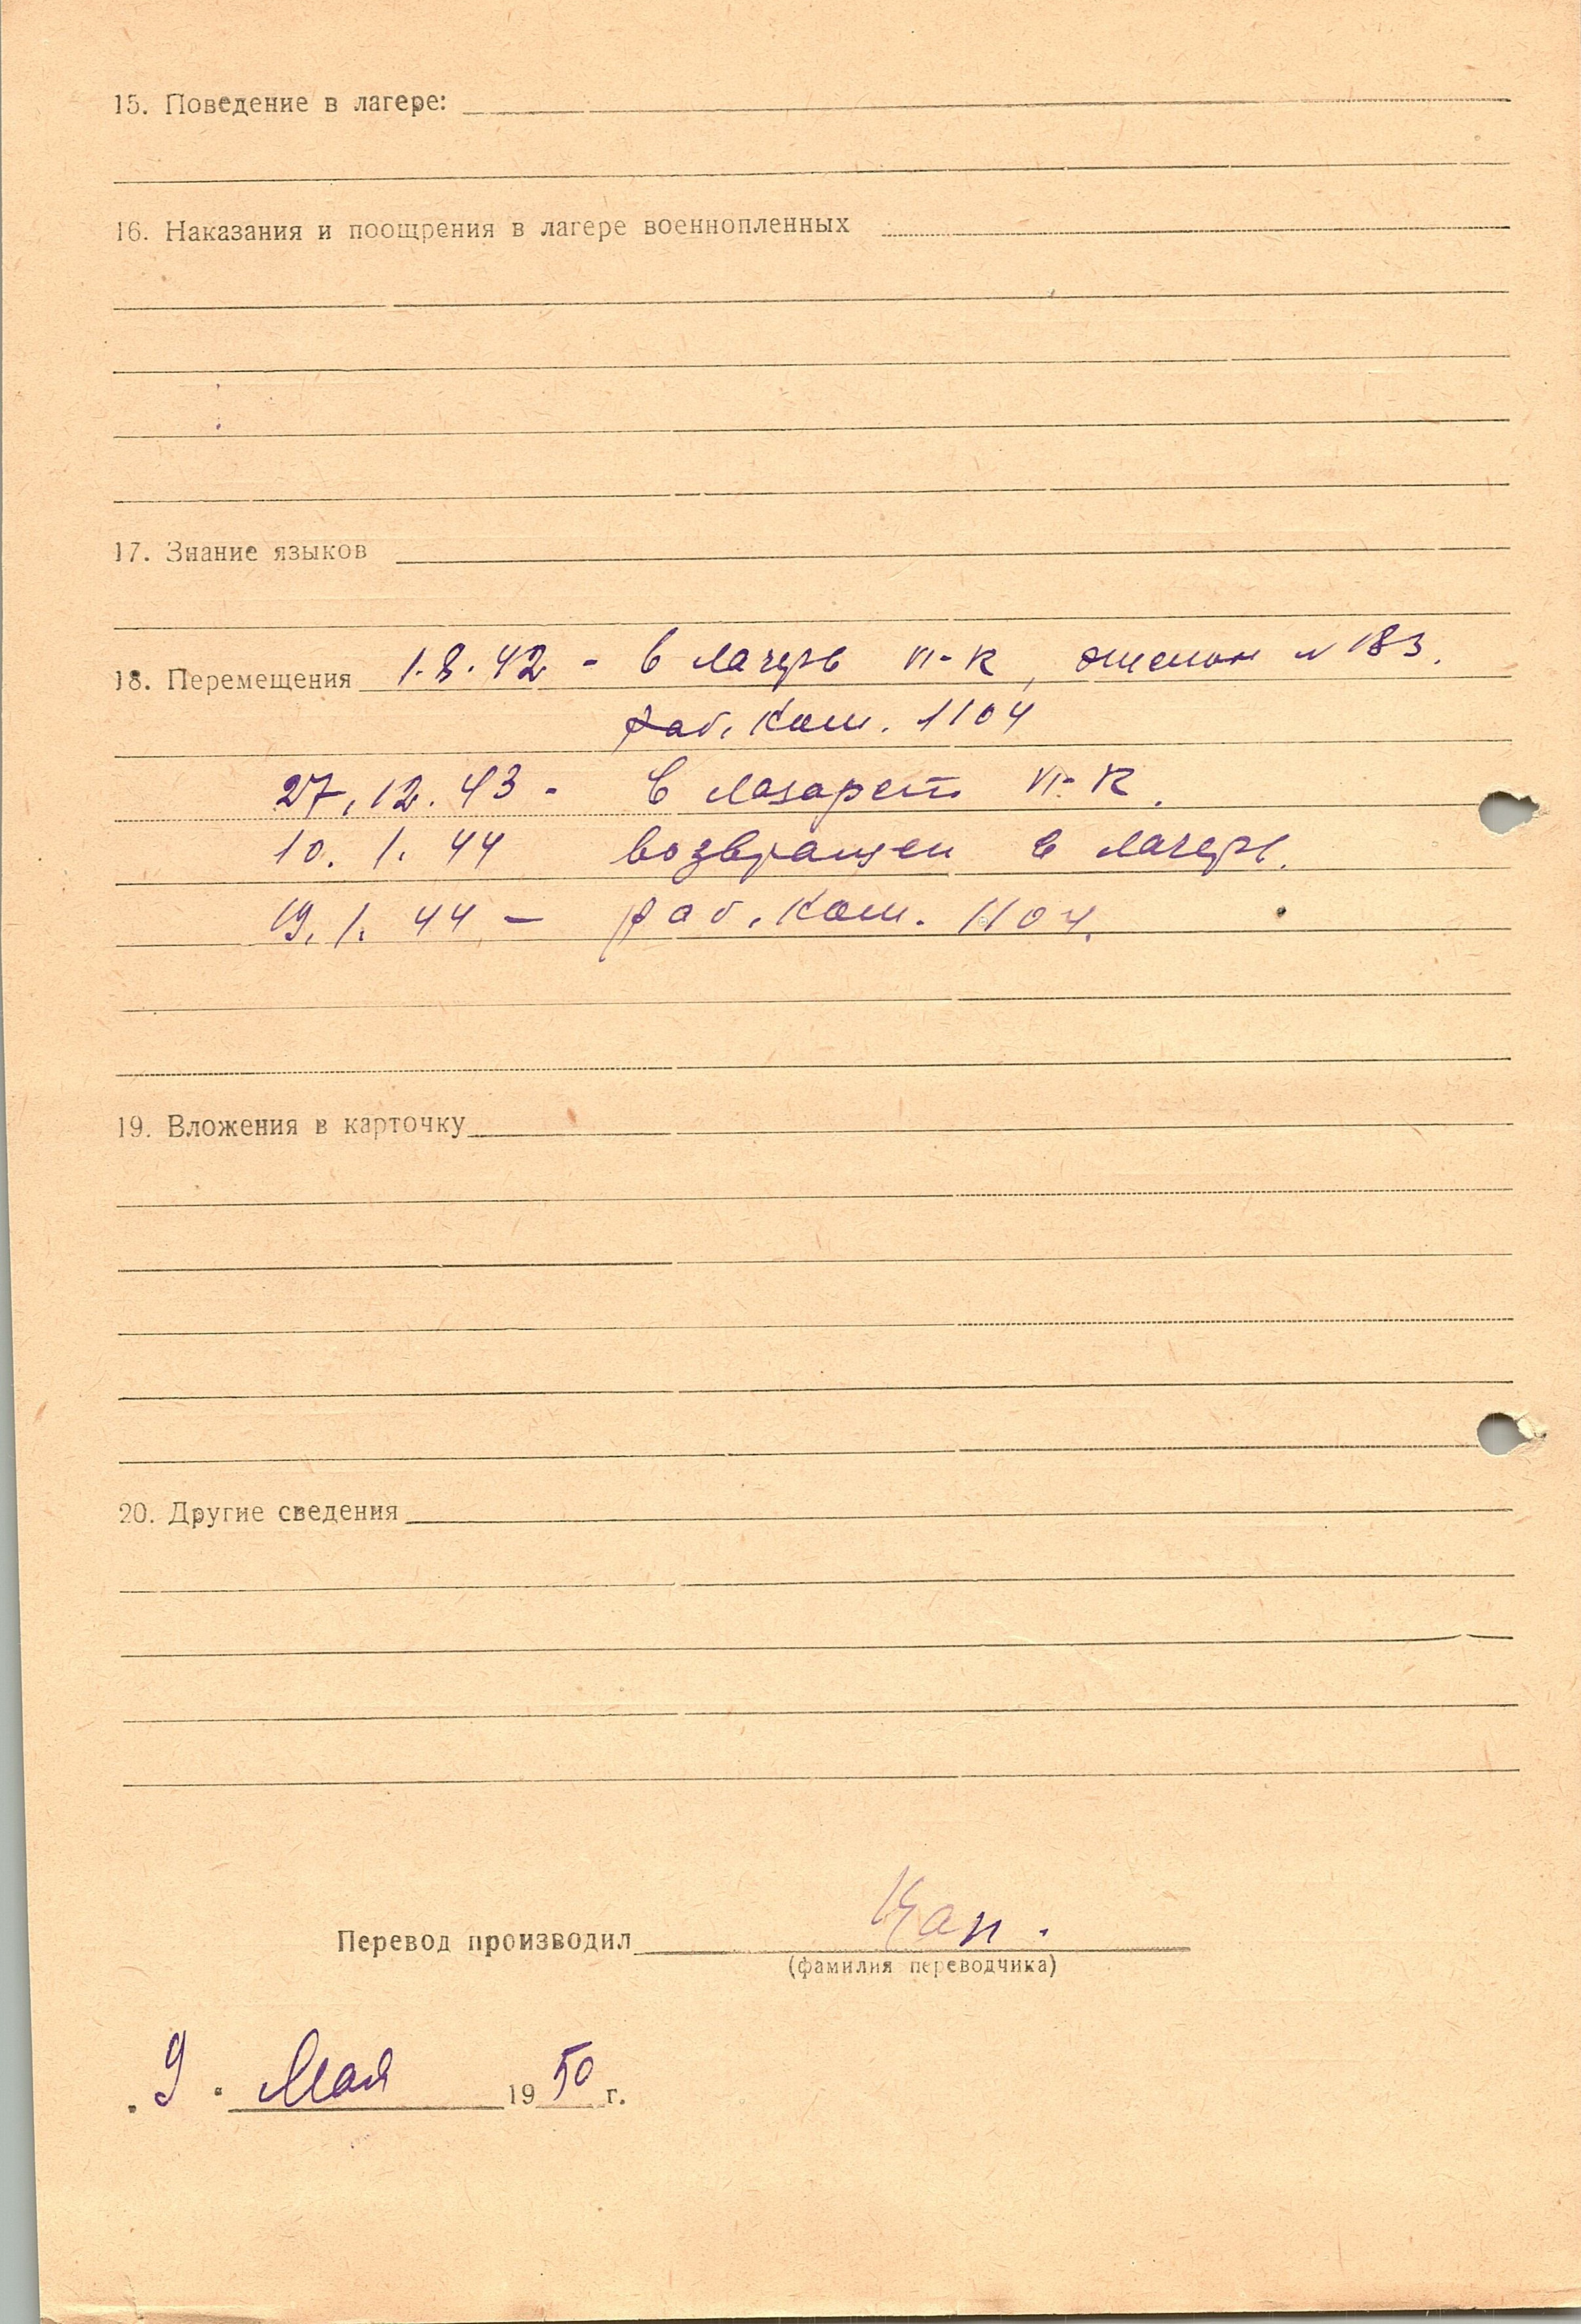 15. Поведение в лагере:
16. Наказания и поощрения в лагере военнопленных
17. Знание языков
18. Перемещения 1.8.42 - в лагерь VI-K, эшелон N 183.
раб. ком. 1104
27.12.43 - в лазарет VI-K.
10.1.44 возвращен в лагерь.
19.1.44 - раб. ком. 1104.
19. Вложения в карточку
20. Другие сведения
Перевод производил
(фамилия переводчика)
"9" Мая 1950 г.